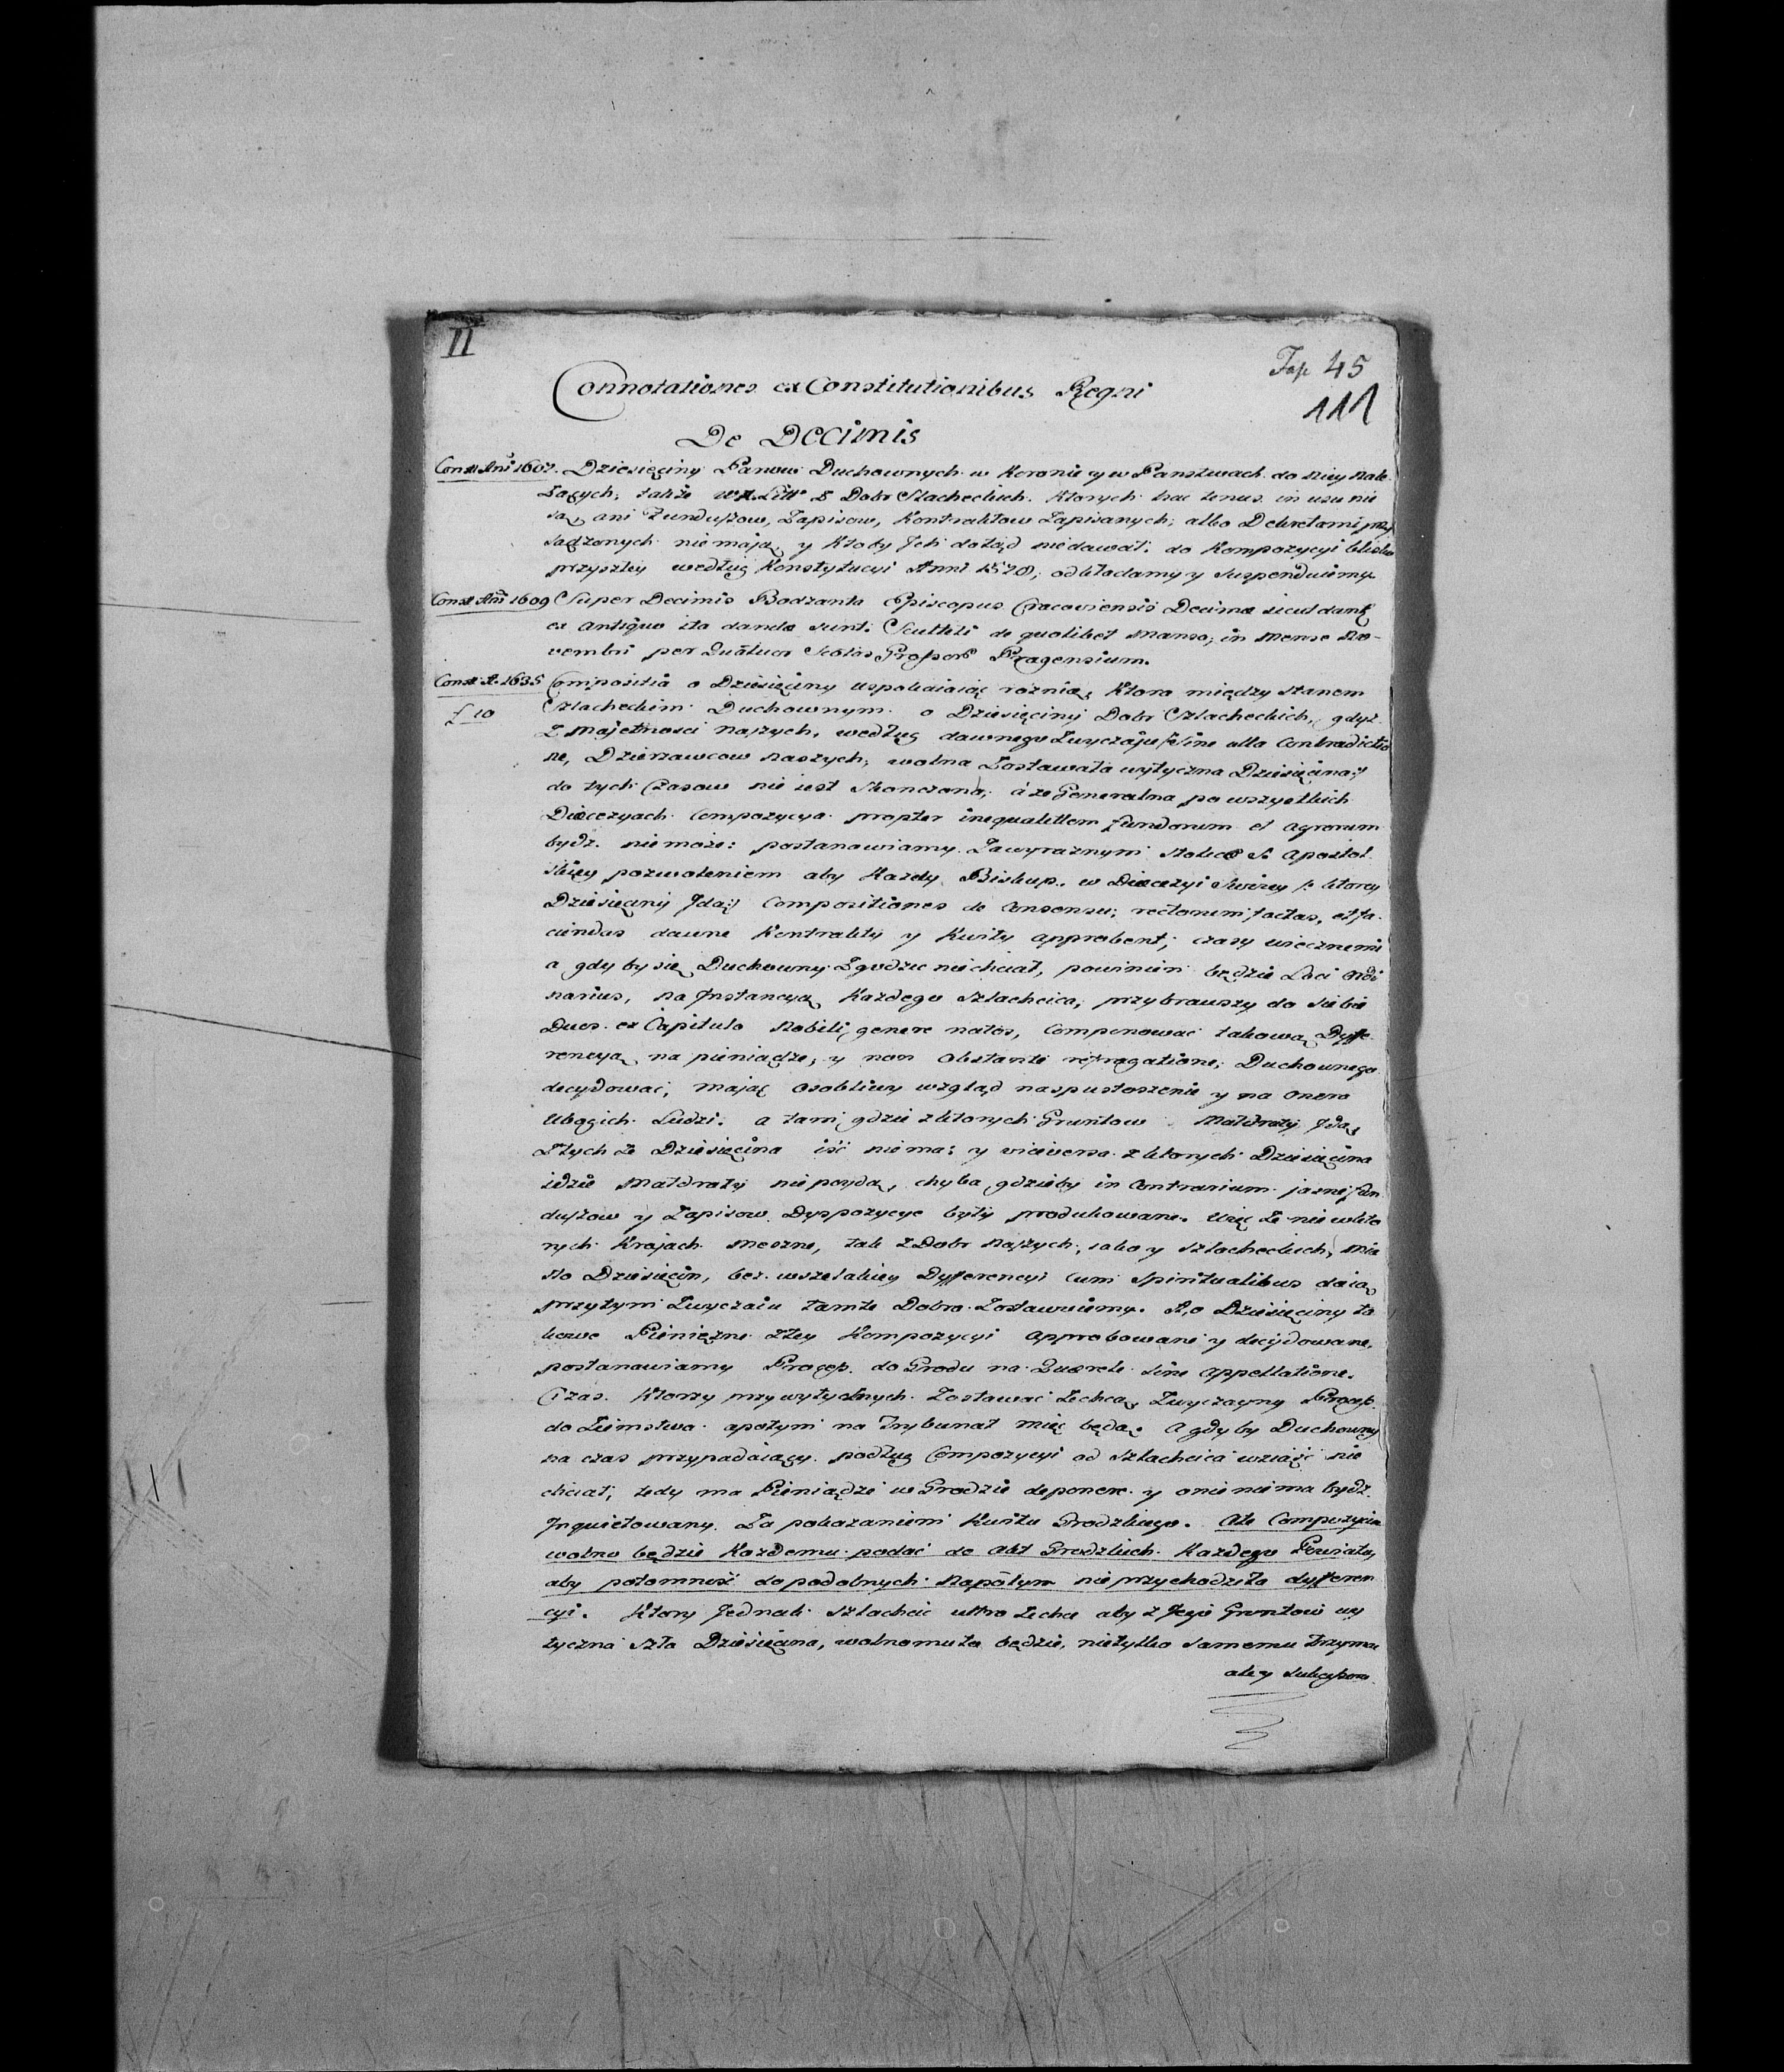 II
Fas. 45
111
Connotationes ex Constitutionibus Regni
De Decimis
Const. Ani 1607. Dziesięciny Panow Duchownych w Koronie y w Panstwach do niey nale-
żących, także w X. Litt. z Dobr Szlacheckich. Ktorych hac tenus in usu nie
są, ani Funduszow, Zapisow, Kontraktow Zapisanych, albo Dekretami przy-
sądzonych nie mają, y Ktoby Ich dotąd nie dawał, do Kompozycyi blisko
przyszłey według Konstytucyi Anni 1578, odkładamy y Suspenduiemy.
Const. Ani 1609 Super Decimis Bodzanta Episcopus Cracoviensis Decimæ sicut dantę
ex Antiquo ita dande sunt. Sculteti de quolibet Manso, in Mense No-
vembri per Quatuor Scotos Grossor. Pragensium.
Const. A. 1635 Compositia o Dziesięciny uspokaiaiąc roznice, Ktora między Stanem
f 10
Szlacheckim Duchownym o Dziesięciny Dobr Szlacheckich, gdyż
z Majetnosci Naszych, według dawnego Zwyczaju /: Sine alla Contradictio
ne, Dzierzawcow Naszych, wolna Zostawała wytyczna Dziesięcina :/
do tych Czasow nie iest Skonczona, á że Generalna po wszystkich
Diœcezyach Compozycya propter inequalitem fundorum et agrorum
bydz nie może: postanawiamy Zawyraznym Stolice S. Apostol-
skiey pozwoleniem aby Każdy Biskup, w Diœcezyi Swoiey /: ktorey
Dziesięciny Idą :/ Compositiones de Consensu, rectorum factas, et fa-
ciendas dawne Kontrakty y Kwity approbent, czasy wiecznemi
a gdy by się Duchowny Zgodzic nie chciał, powinien będzie Loci Ordi
narius, na Instancyą Każdego Szlachcica, przybrawszy do siebie
Duos ex Capitulo Nobili genere natos, Componować takową Dyffe-
rencyą na pieniądze, y non Obstante refragatione, Duchownego
decydować, mając osobliwy wzgląd na spustoszenie y na Onera
Ubogich Ludzi. a tam gdzie z ktorych Gruntow Małdraty Idą,
Z tych że Dziesięcina iść nie ma; y viceversa z ktorych Dziesięcina
idzie Małdraty nie poydą, chyba gdzieby in Contrarium jasne Fun
duszow y Zapisow Dyspozycye były produkowane. Więc że nie wkto
rych Krajach meszne, tak z Dobr Naszych, iako y Szlacheckich, mia
sto Dziesięcin, bez wszelakiey Dyfferencyi cum Spiritualibus daią
przytym Zwyczaiu tamte Dobra Zostawuiemy. A, o Dziesięciny ta
kowe Pieniężne z tey Kompozycyi approbowane y decydowane,
postanawiamy Process do Grodu na Querele Sine appellatione.
Czas. Ktorzy przy wytycznych Zostawać Zechcą, Zwyczayny Process
do Ziemstwa apotym na Trybunał mieć będą. A gdy by Duchowny
na czas przypadaiący podług Compozycyi od Szlachcica wziąść nie
chciał, tedy ma Pieniądze w Grodzie deponere y o nie nie ma bydz
Inquietowany Za pokazaniem Kwitu Grodzkiego. Ale Compozycie
wolno będzie Każdemu podać do Akt Grodzkich Każdego Powiatu,
aby potomność do podobnych Napotym nie przychodziła dyfferen
cyi. Ktory Jednak Szlachcic ultro Zechce aby z Jego Gruntow wy
tyczna Szła Dziesięcina, wolno mu to będzie, nietylko Samemu trzymac
ale y Sukcessorom.